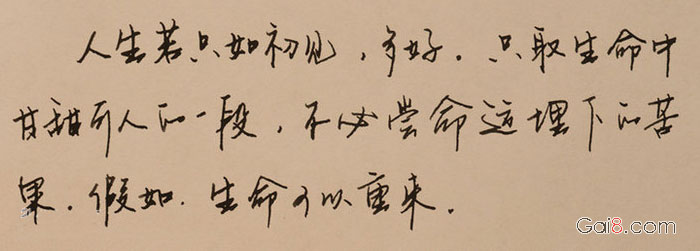 人生若只如初见，多好。只取生命中
甘甜可人的一段，不必尝命运埋下的苦
果。假如.生命可以重来。
Gai8.com